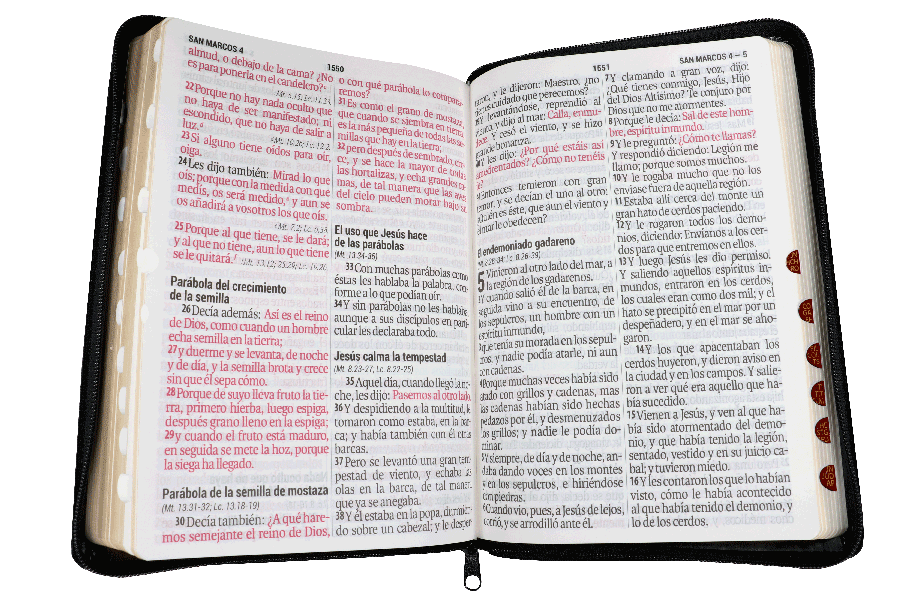 SAN MARCOS 4
1550
almud, o debajo de la cama? ¿No
es para ponerla en el candelero?
22Porque no hay nada oculto que
no haya de ser manifestado; ni
escondido, que no haya de salir a
luz.
23Si alguno tiene oídos para oír,
oiga.
24Les dijo también: Mirad lo que
oís; porque con la medida con que
medís, os será medido, y aun se
os añadirá a vosotros los que oís.
25Porque al que tiene, se le dará;
y al que no tiene, aun lo que tiene
se le quitará.
Parábola del crecimiento
de la semilla
26Decía además: Así es el reino
de Dios, como cuando un hombre
echa semilla en la tierra;
27y duerme y se levanta, de noche
y de día, y la semilla brota y crece
sin que él sepa cómo.
28Porque de suyo lleva fruto la tie-
rra, primero hierba, luego espiga,
después grano lleno en la espiga;
29y cuando el fruto está maduro,
en seguida se mete la hoz, porque
la siega ha llegado.
Parábola de la semilla de mostaza
(Mt. 13.31-32; Lc. 13.18-19)
30Decía también: ¿A qué hare-
mos semejante el reino de Dios,
o con qué parábola lo compara-
remos?
31Es como el grano de mostaza,
que cuando se siembra en tierra,
es la más pequeña de todas las se-
millas que hay en la tierra;
32pero después de sembrado, cre-
ce, y se hace la mayor de todas
las hortalizas, y echa grandes ra-
mas, de tal manera que las aves
del cielo pueden morar bajo su
sombra.
El uso que Jesús hace
de las parábolas
(Mt. 13.34-35)
33Con muchas parábolas como
éstas les hablaba la palabra, con-
forme a lo que podían oír.
34Y sin parábolas no les hablaba;
aunque a sus discípulos en parti-
cular les declaraba todo.
Jesús calma la tempestad
(Mt. 8.23-27; Lc. 8.22-25)
35Aquel día, cuando llegó la no-
che, les dijo: Pasemos al otro lado.
36Y despidiendo a la multitud, le
tomaron como estaba, en la bar-
ca; y había también con él otras
barcas.
37Pero se levantó una gran tem-
pestad de viento, y echaba las
olas en la barca, de tal manera
que ya se anegaba.
38Y él estaba en la popa, durmien-
do sobre un cabezal; y le desper-
1551
SAN MARCOS 4 – 5
taron, y le dijeron: Maestro, ¿no
tienes cuidado que perecemos?
levantándose, reprendió al
viento, y dijo al mar: Calla, enmu-
dece. Y cesó el viento, y se hizo
grande bonanza.
Y les dijo: ¿Por qué estáis así
amedrentados? ¿Cómo no tenéis
fe?
Entonces temieron con gran
temor, y se decían el uno al otro:
¿Quién es éste, que aun el viento y
el mar le obedecen?
El endemoniado gadareno
(Mt. 8.28-34; Lc. 8.26-39)
5 Vinieron al otro lado del mar, a
la región de los gadarenos.
Y cuando salió él de la barca, en
seguida vino a su encuentro, de
los sepulcros, un hombre con un
espíritu inmundo,
que tenía su morada en los sepul-
cros, y nadie podía atarle, ni aun
con cadenas.
Porque muchas veces había sido
atado con grillos y cadenas, mas
las cadenas habían sido hechas
pedazos por él, y desmenuzados
los grillos; y nadie le podía do-
minar.
Y siempre, de día y de noche, an-
daba dando voces en los montes
y en los sepulcros, e hiriéndose
con piedras.
Cuando vio, pues, a Jesús de lejos,
corrió, y se arrodilló ante él.
7Y clamando a gran voz, dijo:
¿Qué tienes conmigo, Jesús, Hijo
del Dios Altísimo? Te conjuro por
Dios que no me atormentes.
8Porque le decía: Sal de este hom-
bre, espíritu inmundo.
9Y le preguntó: ¿Cómo te llamas?
Y respondió diciendo: Legión me
llamo; porque somos muchos.
10Y le rogaba mucho que no los
enviase fuera de aquella región.
11Estaba allí cerca del monte un
gran hato de cerdos paciendo.
12Y le rogaron todos los demo-
nios, diciendo: Envíanos a los cer-
dos para que entremos en ellos.
13Y luego Jesús les dio permiso.
Y saliendo aquellos espíritus in-
mundos, entraron en los cerdos,
los cuales eran como dos mil; y el
hato se precipitó en el mar por un
despeñadero, y en el mar se aho-
garon.
14Y los que apacentaban los
cerdos huyeron, y dieron aviso en
la ciudad y en los campos. Y salie-
ron a ver qué era aquello que ha-
bía sucedido.
15Vienen a Jesús, y ven al que ha-
bía sido atormentado del demo-
nio, y que había tenido la legión,
sentado, vestido y en su juicio ca-
bal; y tuvieron miedo.
16Y les contaron los que lo habían
visto, cómo le había acontecido
al que había tenido el demonio, y
lo de los cerdos.